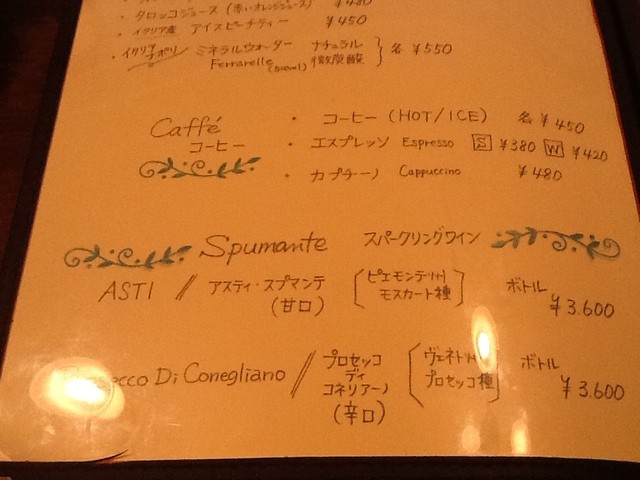 ・タロッコジュース (赤いオレンジジュース) ¥480
・イタリア産 アイスピーチティー ¥450
・イタリア ナポリ ミネラルウォーター ナチュラル 各 ¥550
Ferrarelle (500ml) 微炭酸
Caffé ・コーヒー (HOT/ICE) 各¥450
コーヒー ・エスプレッソ Espresso S ¥380 W ¥420
・カプチーノ Cappuccino ¥480
Spumante スパークリングワイン
ASTI // アスティ・スプマンテ [ピエモンテ州 ボトル
(甘口) モスカート種] ¥3.600
Di Conegliano // プロセッコ [ヴェネト州 ボトル
ディ プロセッコ種] ¥3.600
コネリアーノ
(辛口)